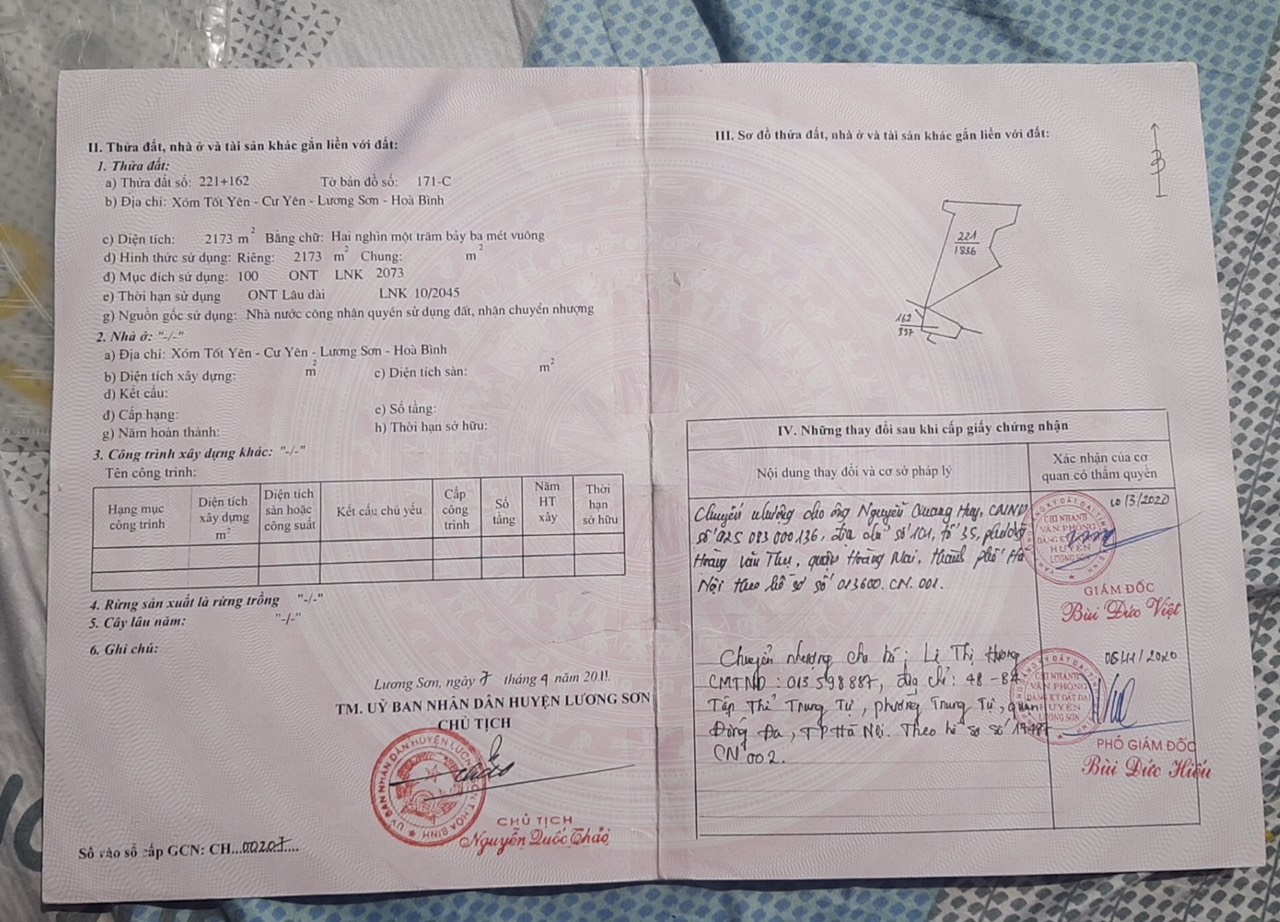 II. Thửa đất, nhà ở và tài sản khác gắn liền với đất:
1. Thửa đất:
a) Thửa đất số: 221+162 Tờ bản đồ số: 171-C
b) Địa chỉ: Xóm Tốt Yên - Cư Yên - Lương Sơn - Hoà Bình
c) Diện tích: 2173 m² Bằng chữ: Hai nghìn một trăm bảy ba mét vuông
d) Hình thức sử dụng: Riêng: 2173 m² Chung: m²
đ) Mục đích sử dụng: 100 ONT LNK 2073
e) Thời hạn sử dụng ONT Lâu dài LNK 10/2045
g) Nguồn gốc sử dụng: Nhà nước công nhân quyền sử dụng đất, nhân chuyển nhượng
2. Nhà ở: "-/-"
a) Địa chỉ: Xóm Tốt Yên - Cư Yên - Lương Sơn - Hoà Bình
b) Diện tích xây dựng: m² c) Diện tích sàn: m²
d) Kết cấu:
đ) Cấp hạng: e) Số tầng:
g) Năm hoàn thành: h) Thời hạn sở hữu:
3. Công trình xây dựng khác: "-/-"
Tên công trình:
Hạng mục công trình
Diện tích xây dựng m²
Diện tích sàn hoặc công suất
Kết cấu chủ yếu
Cấp công trình
Số tầng
Năm HT xây
Thời hạn sở hữu
4. Rừng sản xuất là rừng trồng "-/-"
5. Cây lâu năm: "-/-"
6. Ghi chú:
Lương Sơn, ngày 7 tháng 4 năm 2011.
TM. UỶ BAN NHÂN DÂN HUYỆN LƯƠNG SƠN
CHỦ TỊCH
UỶ BAN NHÂN DÂN HUYỆN LƯƠNG SƠN T.HÒA BÌNH
CHỦ TỊCH
Nguyễn Quốc Thảo
Số vào sổ cấp GCN: CH...00207...
III. Sơ đồ thửa đất, nhà ở và tài sản khác gắn liền với đất:
B
221
1836
162
337
IV. Những thay đổi sau khi cấp giấy chứng nhận
Nội dung thay đổi và cơ sở pháp lý
Xác nhận của cơ quan có thẩm quyền
Chuyển nhượng cho ông Nguyễn Quang Huy, CMND
số 025 083 000136, địa chỉ số 101, tổ 35, phường
Hoàng Văn Thụ, quận Hoàng Mai, thành phố Hà
Nội theo hồ sơ số 013600. CN. 001.
10/3/2020
CHI NHÁNH
VĂN PHÒNG
ĐĂNG KÝ ĐẤT ĐAI
HUYỆN
LƯƠNG SƠN
GIÁM ĐỐC
Bùi Đức Việt
Chuyển nhượng cho bà: Lê Thị Hương
CMTND: 013598887, địa chỉ: 48-B4
Tập Thể Trung Tự, phường Trung Tự, quận
Đống Đa, TP Hà Nội. Theo hồ sơ số
CN 002.
05/11/2020
CHI NHÁNH
VĂN PHÒNG
ĐĂNG KÝ ĐẤT ĐAI
HUYỆN
LƯƠNG SƠN
PHÓ GIÁM ĐỐC
Bùi Đức Hiếu